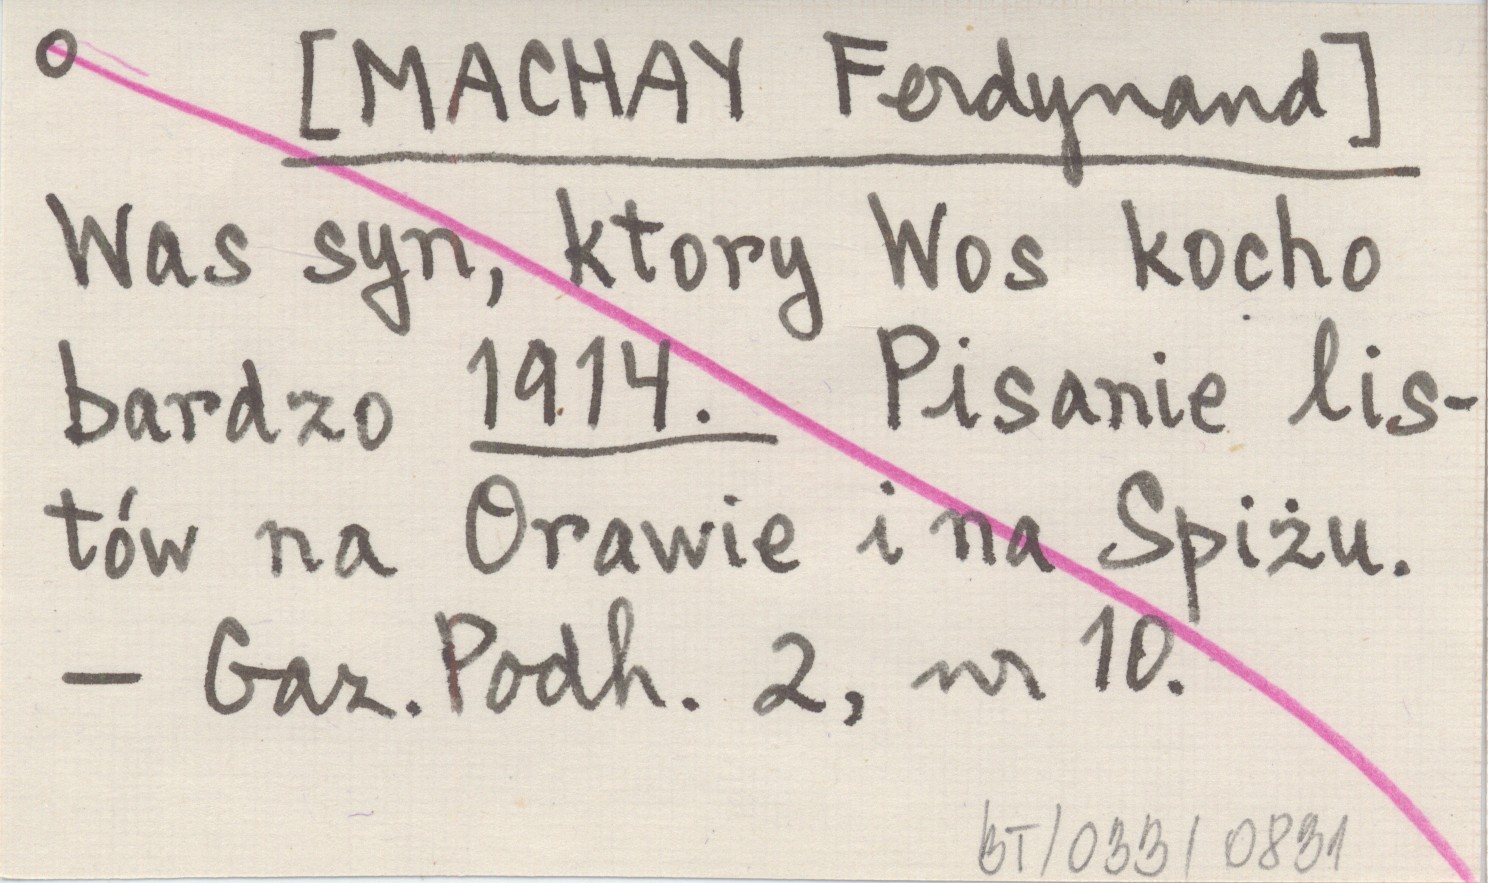 O [MACHAY Ferdynand]
Was syn, ktory Wos kocho
bardzo 1914. Pisanie lis-
tów na Orawie i na Spiżu.
– Gaz. Podh. 2, nr 10.
BT/033/0831